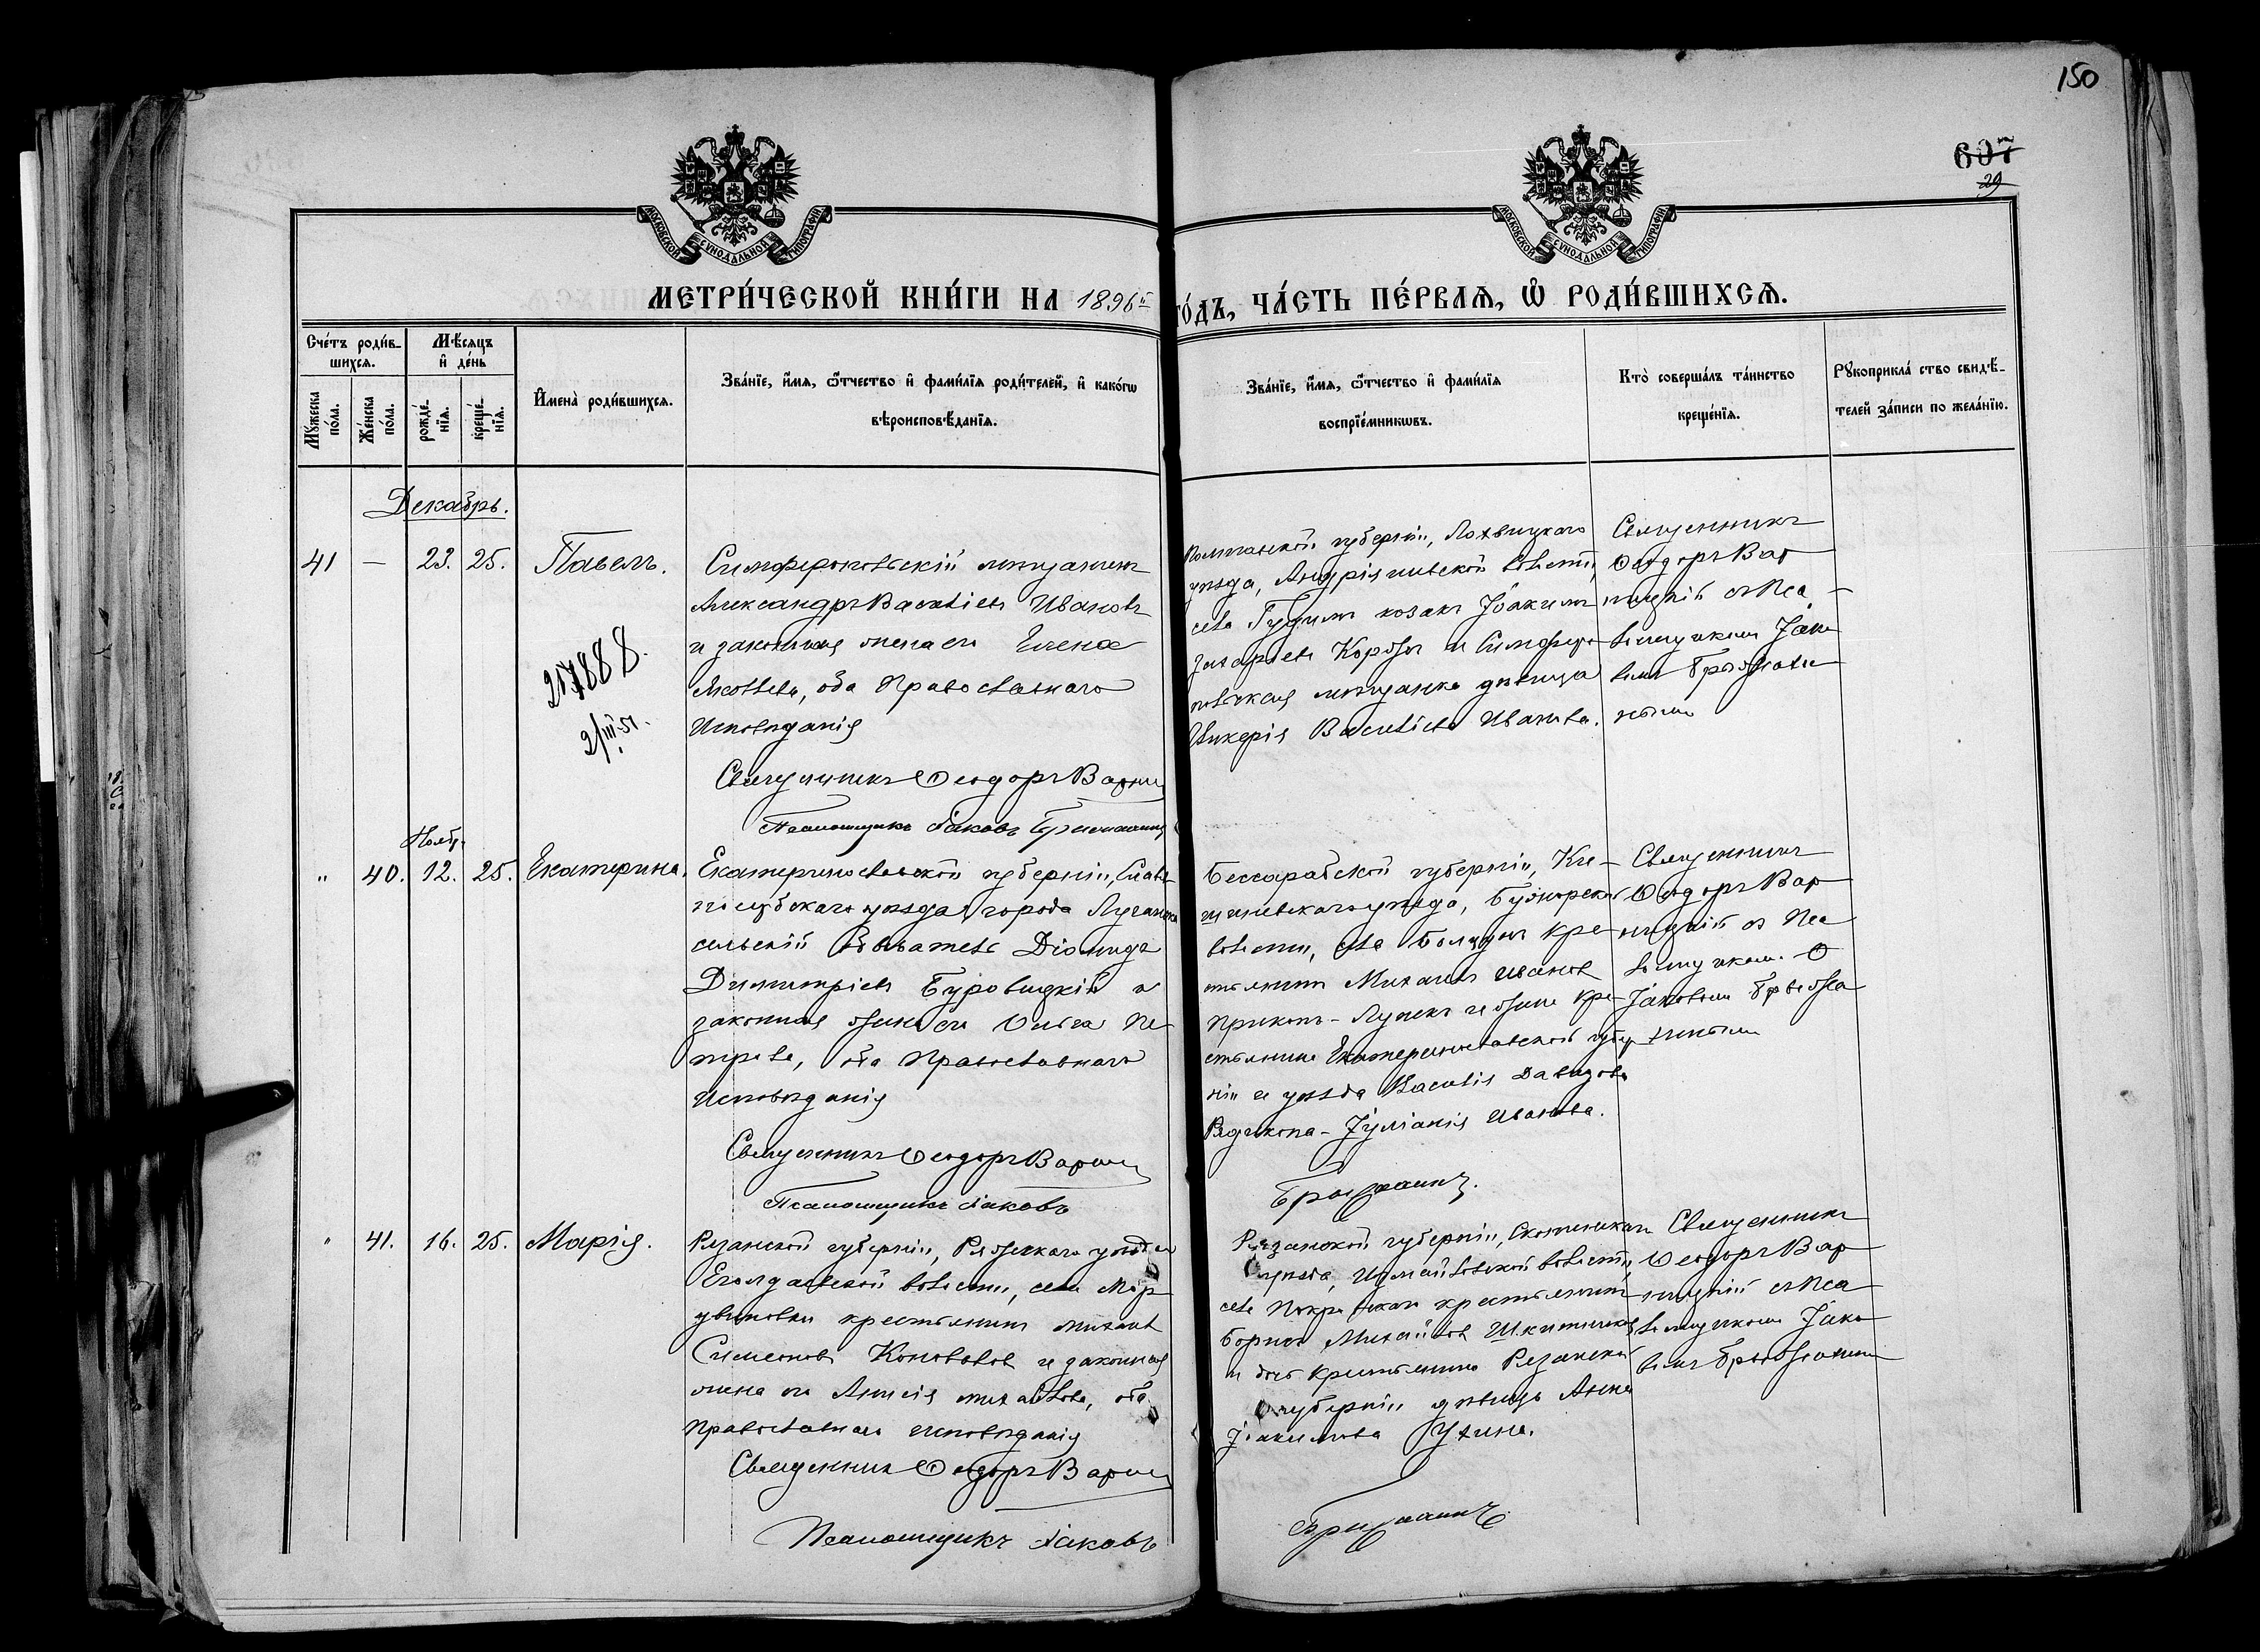 150
607
29
МОСКОВСКОЙ СѴНОДАЛЬНОЙ ТИПОГРАФІИ
МОСКОВСКОЙ СѴНОДАЛЬНОЙ ТИПОГРАФІИ
МЕТРИ́ЧЕСКОЙ КНИ́ГИ НА 1896й ГО́ДЪ, ЧА́СТЬ ПЕ́РВАѦ, Ѽ РОДИ́ВШИХСѦ.
Сче́тъ роди́в-
шихсѧ.
Мꙋ́жеска по́ла.
Же́нска по́ла.
Мѣ́сѧцъ
и҆ де́нь
рожде́-
нїѧ.
креще́-
нїѧ.
И҆мена̀ роди́вшихсѧ.
Зва́нїе, и҆́мѧ, ѻ҆́тчество и҆ фами́лїѧ роди́телей, и҆ како́гѡ
вѣроисповѣ́данїѧ.
Зва́нїе, и҆́мѧ, ѻ҆́тчество и҆ фами́лїѧ
воспрїе́мникѡвъ.
Кто̀ соверша́лъ та́инство
креще́нїѧ.
Рꙋкоприкла́ ство свидѣ́-
телей за́писи по жела́нїю.
Декабрь.
41 — 23. 25. Павелъ.
Симферопольскій мѣщанинъ
Александръ Васильевъ Ивановъ
и законная жена его Елена
оба Православнаго
Исповѣданія
217888.
2/III 51.
Священникъ Ѳеодоръ
Псаломщикъ Іаковъ
Полтавской губерніи, Лохвицкаго
уѣзда, волости,
села козакъ Іоакимъ
Захаріевъ и Симферо-
польская мѣщанка дѣвица
Гликерія Васильева Иванова.
Священникъ
Ѳеодоръ Вар
ницкій съ Пса-
ломщикомъ Іако
вомъ
Ноябр.
" 40. 12. 25. Екатерина.
Екатеринославской губерніи, Славя
носербскаго уѣзда города Луганска
сельскій обыватель Діомидъ
Димитріевъ Буровицкій и
законная жена его Ольга Пе
трова, оба Православнаго
Исповѣданія
Священникъ Ѳеодоръ
Псаломщикъ Іаковъ
Бессарабской губерніи, Ки-
шиневскаго уѣзда,
волости, села кре-
стьянинъ Михаилъ Ивановъ
кре-
стьянина Екатеринославской губер
ніи и уѣзда Василія Давидова
Іуліанія Иванова.
Священникъ
Ѳеодоръ Вар
ницкій съ Пса
ломщикомъ
Іаковомъ
" 41. 16. 25. Марія.
Рязанской губерніи, Ряжскаго уѣзда
Еголдаевской волости, села Мор
двиновки крестьянинъ Михаилъ
Симеоновъ Коноваловъ и законная
жена его Анисія Михайлова, оба
Православнаго исповѣданія
Священникъ Ѳеодоръ
Псаломщикъ Іаковъ
Рязанской губерніи, Скопинскаго
уѣзда, волости,
села Покровскаго крестьянинъ
Борисъ Михайловъ
и дочь крестьянина Рязанской
губерніи дѣвица Анна
Іоакимова
Священникъ
Ѳеодоръ Вар
ницкій съ Пса
ломщикомъ Іако
вомъ